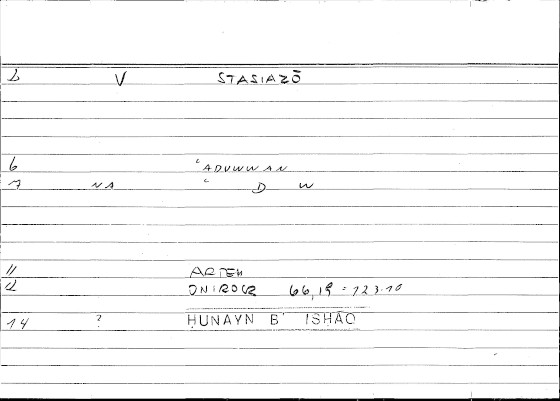 2 V STASIAZŌ
6 ʿADUWWAN
7 NA ʿ D W
11 ARTEM
12 ONIROCR 66,19 = 123.10
14 ? ḤUNAYN B ISḤĀQ